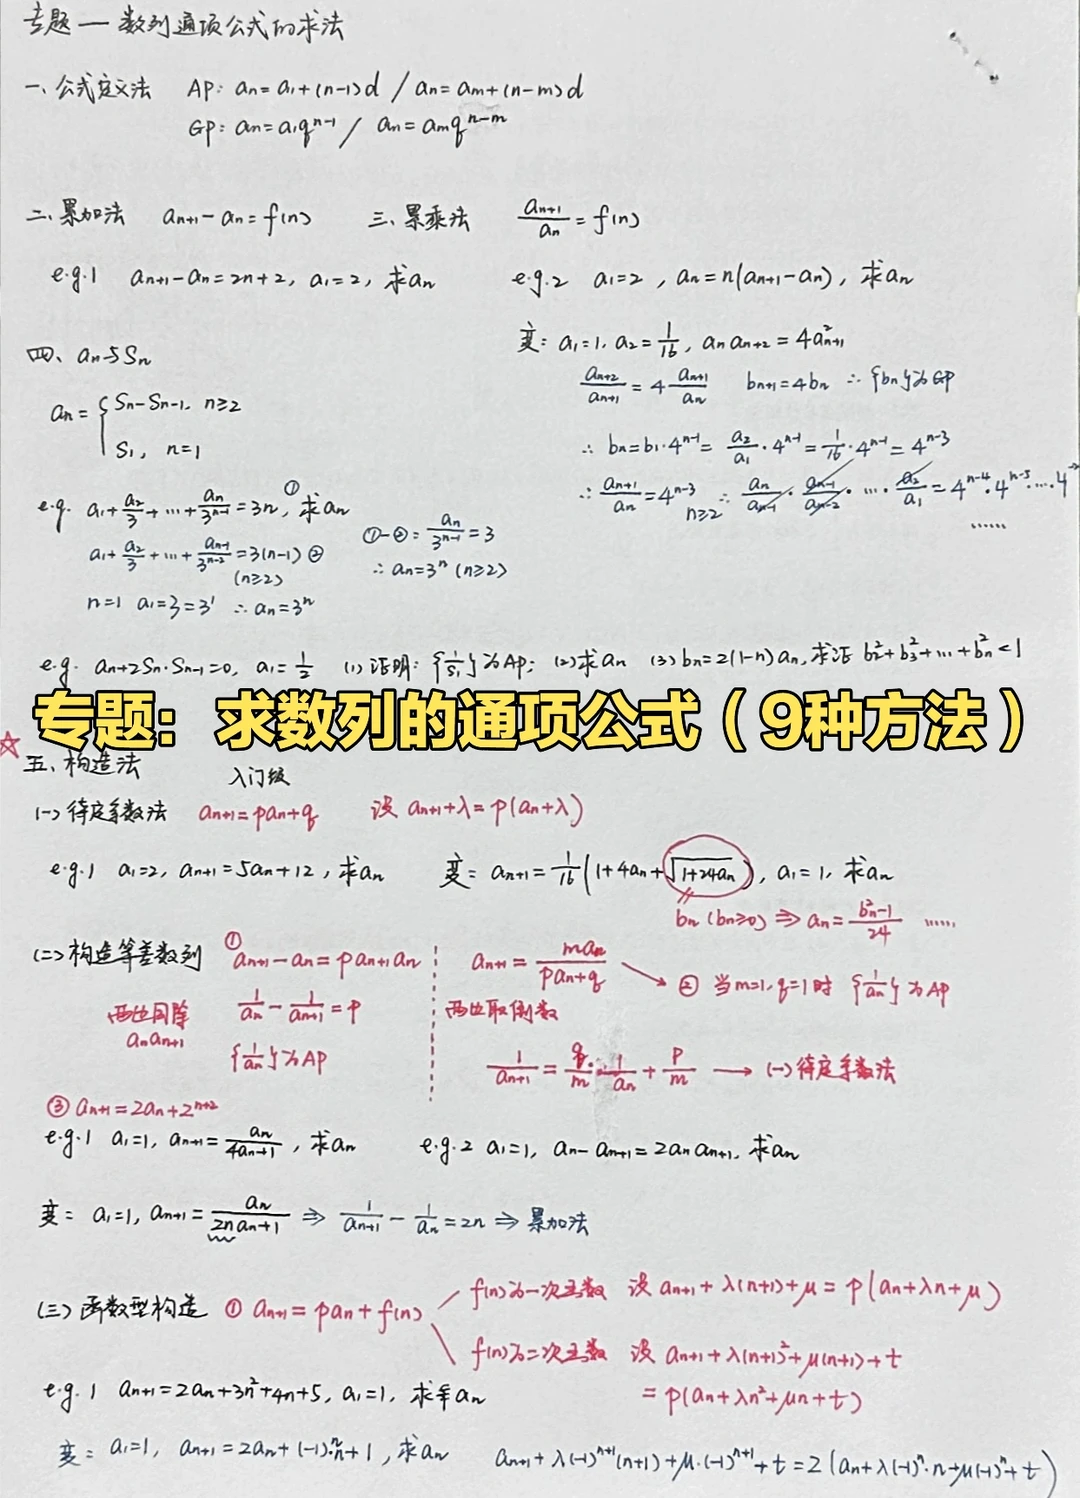 专题一 数列通项公式的求法
一、公式定义法 AP: an=a₁+(n-1)d / an=am+(n-m)d
GP: an=a₁qⁿ⁻¹ / an=amqⁿ⁻ᵐ
二、累加法 an+1-an=f(n) 三、累乘法 an+1/an=f(n)
e.g.1 an+1-an=2n+2, a₁=2, 求an e.g.2 a₁=2, an=n(an+1-an), 求an
变: a₁=1, a₂=1/16, an an+2=4a²n+1
四、an与Sn
an+2/an+1=4 an+1/an bn+1=4bn ∴{bn}为GP
an={Sn-Sn-1, n≥2
S₁, n=1
∴ bn=b₁·4ⁿ⁻¹=a₂/a₁·4ⁿ⁻¹=1/16·4ⁿ⁻¹=4ⁿ⁻³
∴ an+1/an=4ⁿ⁻³ ∴ n≥2 an/an-1·an-1/an-2·…·a₂/a₁=4ⁿ⁻⁴·4ⁿ⁻⁵·…·4⁻²
……
e.g. a₁+a₂/3+…+an/3ⁿ⁻¹=3n, ① 求an
a₁+a₂/3+…+an-1/3ⁿ⁻²=3(n-1) ② (n≥2)
①-②: an/3ⁿ⁻¹=3
∴ an=3ⁿ (n≥2)
n=1 a₁=3=3¹ ∴ an=3ⁿ
e.g. an+2Sn·Sn-1=0, a₁=1/2 (1)证明: {1/Sn}为AP; (2)求an (3)bn=2(1-n)an, 求证 b₂²+b₃²+…+bn²<1
专题：求数列的通项公式（9种方法）
☆五、构造法
入门级
(一)待定系数法 an+1=pan+q 设 an+1+λ=p(an+λ)
e.g.1 a₁=2, an+1=5an+12, 求an 变: an+1=1/16(1+4an+√1+24an), a₁=1, 求an
bn (bn≥0) ⇒ an=bn²-1/24 ……
(二)构造等差数列 ① an+1-an=pan+1an
两边同除 anan+1
1/an-1/an+1=p
{1/an}为AP
an+1=man/pan+q → ② 当m=1,q=1时 {1/an}为AP
两边取倒数
1/an+1=q/m·1/an+p/m → (一)待定系数法
③ an+1=2an+2ⁿ⁺²
e.g.1 a₁=1, an+1=an/4an+1, 求an e.g.2 a₁=1, an-an+1=2anan+1, 求an
变: a₁=1, an+1=an/2nan+1 ⇒ 1/an+1-1/an=2n ⇒ 累加法
(三)函数型构造 ① an+1=pan+f(n)
f(n)为一次函数 设 an+1+λ(n+1)+μ=p(an+λn+μ)
f(n)为二次函数 设 an+1+λ(n+1)²+μ(n+1)+t
=p(an+λn²+μn+t)
e.g.1 an+1=2an+3n²+4n+5, a₁=1, 求an
变: a₁=1, an+1=2an+(-1)ⁿ·n+1, 求an an+1+λ(-1)ⁿ⁺¹(n+1)+μ·(-1)ⁿ⁺¹+t=2(an+λ(-1)ⁿ·n+μ(-1)ⁿ+t)